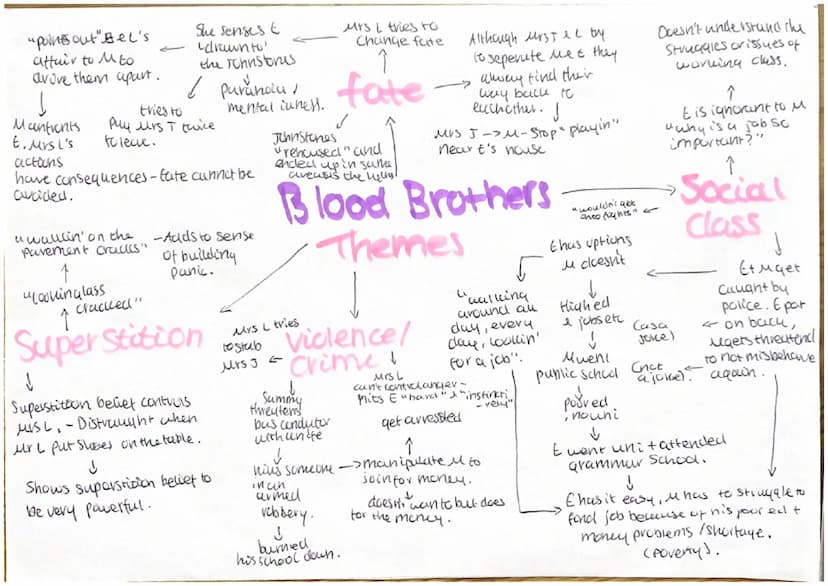 "points out" E & L's
affair to M to
drove them apart.
She senses E
'drawn to'
the Johnstons
Mrs L tries to
change fate
Although Mrs J & L try
to seperate M & E they
always find their
way back to
eachother.
Doesn't understand the
struggles or issues of
working class.
Paranoia /
mental illness.
fate
M confronts
E. Mrs L's
actions
have consequences - fate cannot be
avoided.
tries to
Pay Mrs J twice
to leave.
Johnstones
"rehoused" and
ended up in same
area as the
Mrs J → M - Stop "playin"
near E's house
E is ignorant to M
"why is a job so
important?"
Blood Brothers
Themes
Social
Class
"wouldn't get
into fights"
"walkin' on the
pavement cracks"
- Adds to sense
of building
panic.
"lookinglass
cracked"
E has options
M doesn't
Higher ed
& jobs etc
M went
public school
poor ed,
no uni
E went uni + attended
grammar school.
E + M get
caught by
police. E pat
on back,
M gets threatend
to not misbehave
again.
(as a
joke)
(not
a joke)
"walking
around all
day, every
day, lookin'
for a job".
Superstition
Superstition belief controls
Mrs L, - Distraught when
Mr L put shoes on the table.
Shows superstition belief to
be very powerful.
Violence/
Crime
Mrs L tries
to stab
Mrs J
Mrs L
can't control anger -
hits E "hard" & "instincti
-vely"
Sammy
threatens
bus conductor
with knife
kills someone
in an
armed
robbery.
burned
his school down.
manipulate M to
join for money.
get arrested
doesn't want to but does
for the money.
E has it easy, M has to struggle to
find job because of his poor ed +
money problems / shortage.
(poverty).